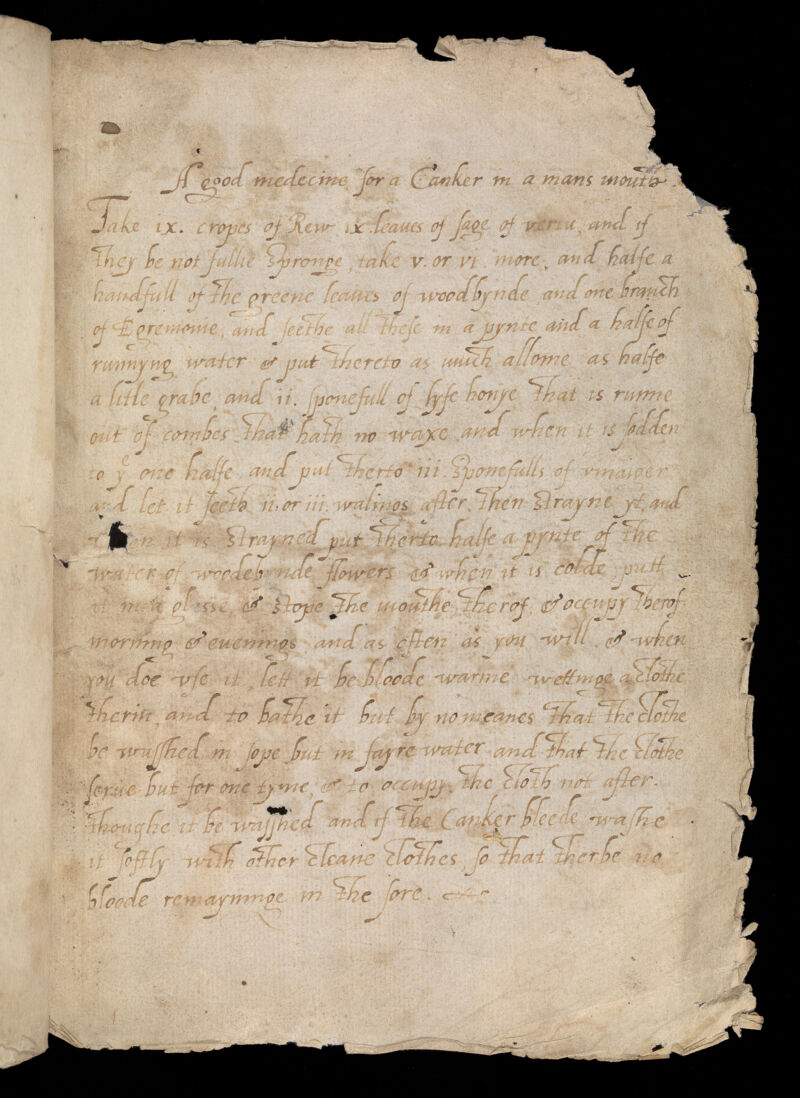 A good medecine for a Canker in a mans mouth
Take ix. cropes of Rew ix leaues of sage of vertu, and if
they be not fullie spronge, take v. or vi. more, and halfe a
handfull of the greene leaues of woodbynde and one branch
of Egremonie, and seethe all these in a pynte and a halfe of
runnyng water & put thereto as much allome as halfe
a litle grabe and ii. sponefull of lyfe honye that is runne
out of combes that hath no waxe and when it is sodden
to yᵉ one halfe and put therto iii sponefulls of vinaiger
and let it seeth ii. or iii. walings after. then strayne yt, and
when it is strayned put therto halfe a pynte of the
water of woodebynde flowers & when it is colde, putt
it in a glasse, & stope the mouthe therof, & occupy therof
morning & evenings and as often as you will & when
you doe vse it, lett it be bloode warme wettinge a clothe
therin, and to bathe it but by no meanes that the clothe
be wasshed in sope but in fayre water and that the clothe
serue but for one tyme, & to occupy the cloth not after.
thoughe it be wasshed and if the Canker bleede washe
it softly with other cleane clothes, so that therbe no
bloode remayninge in the sore.